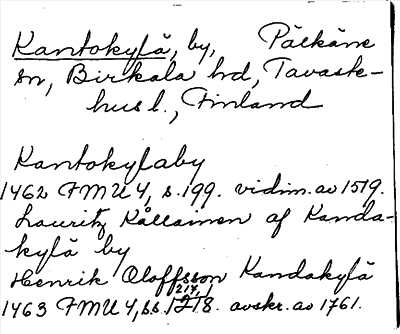 Kantokylä, by, Pälkäne
sn, Birkala hd, Tavaste-
hus l., Finland
Kantokylaby
1462 FMU 4, s. 199. vidim. av 1519.
Lauritz Kållainen af Kanda-
kylä by
Henrik Oloffsson Kandakylä
1463 FMU 4, ss. 217, 218. avskr. av 1761.